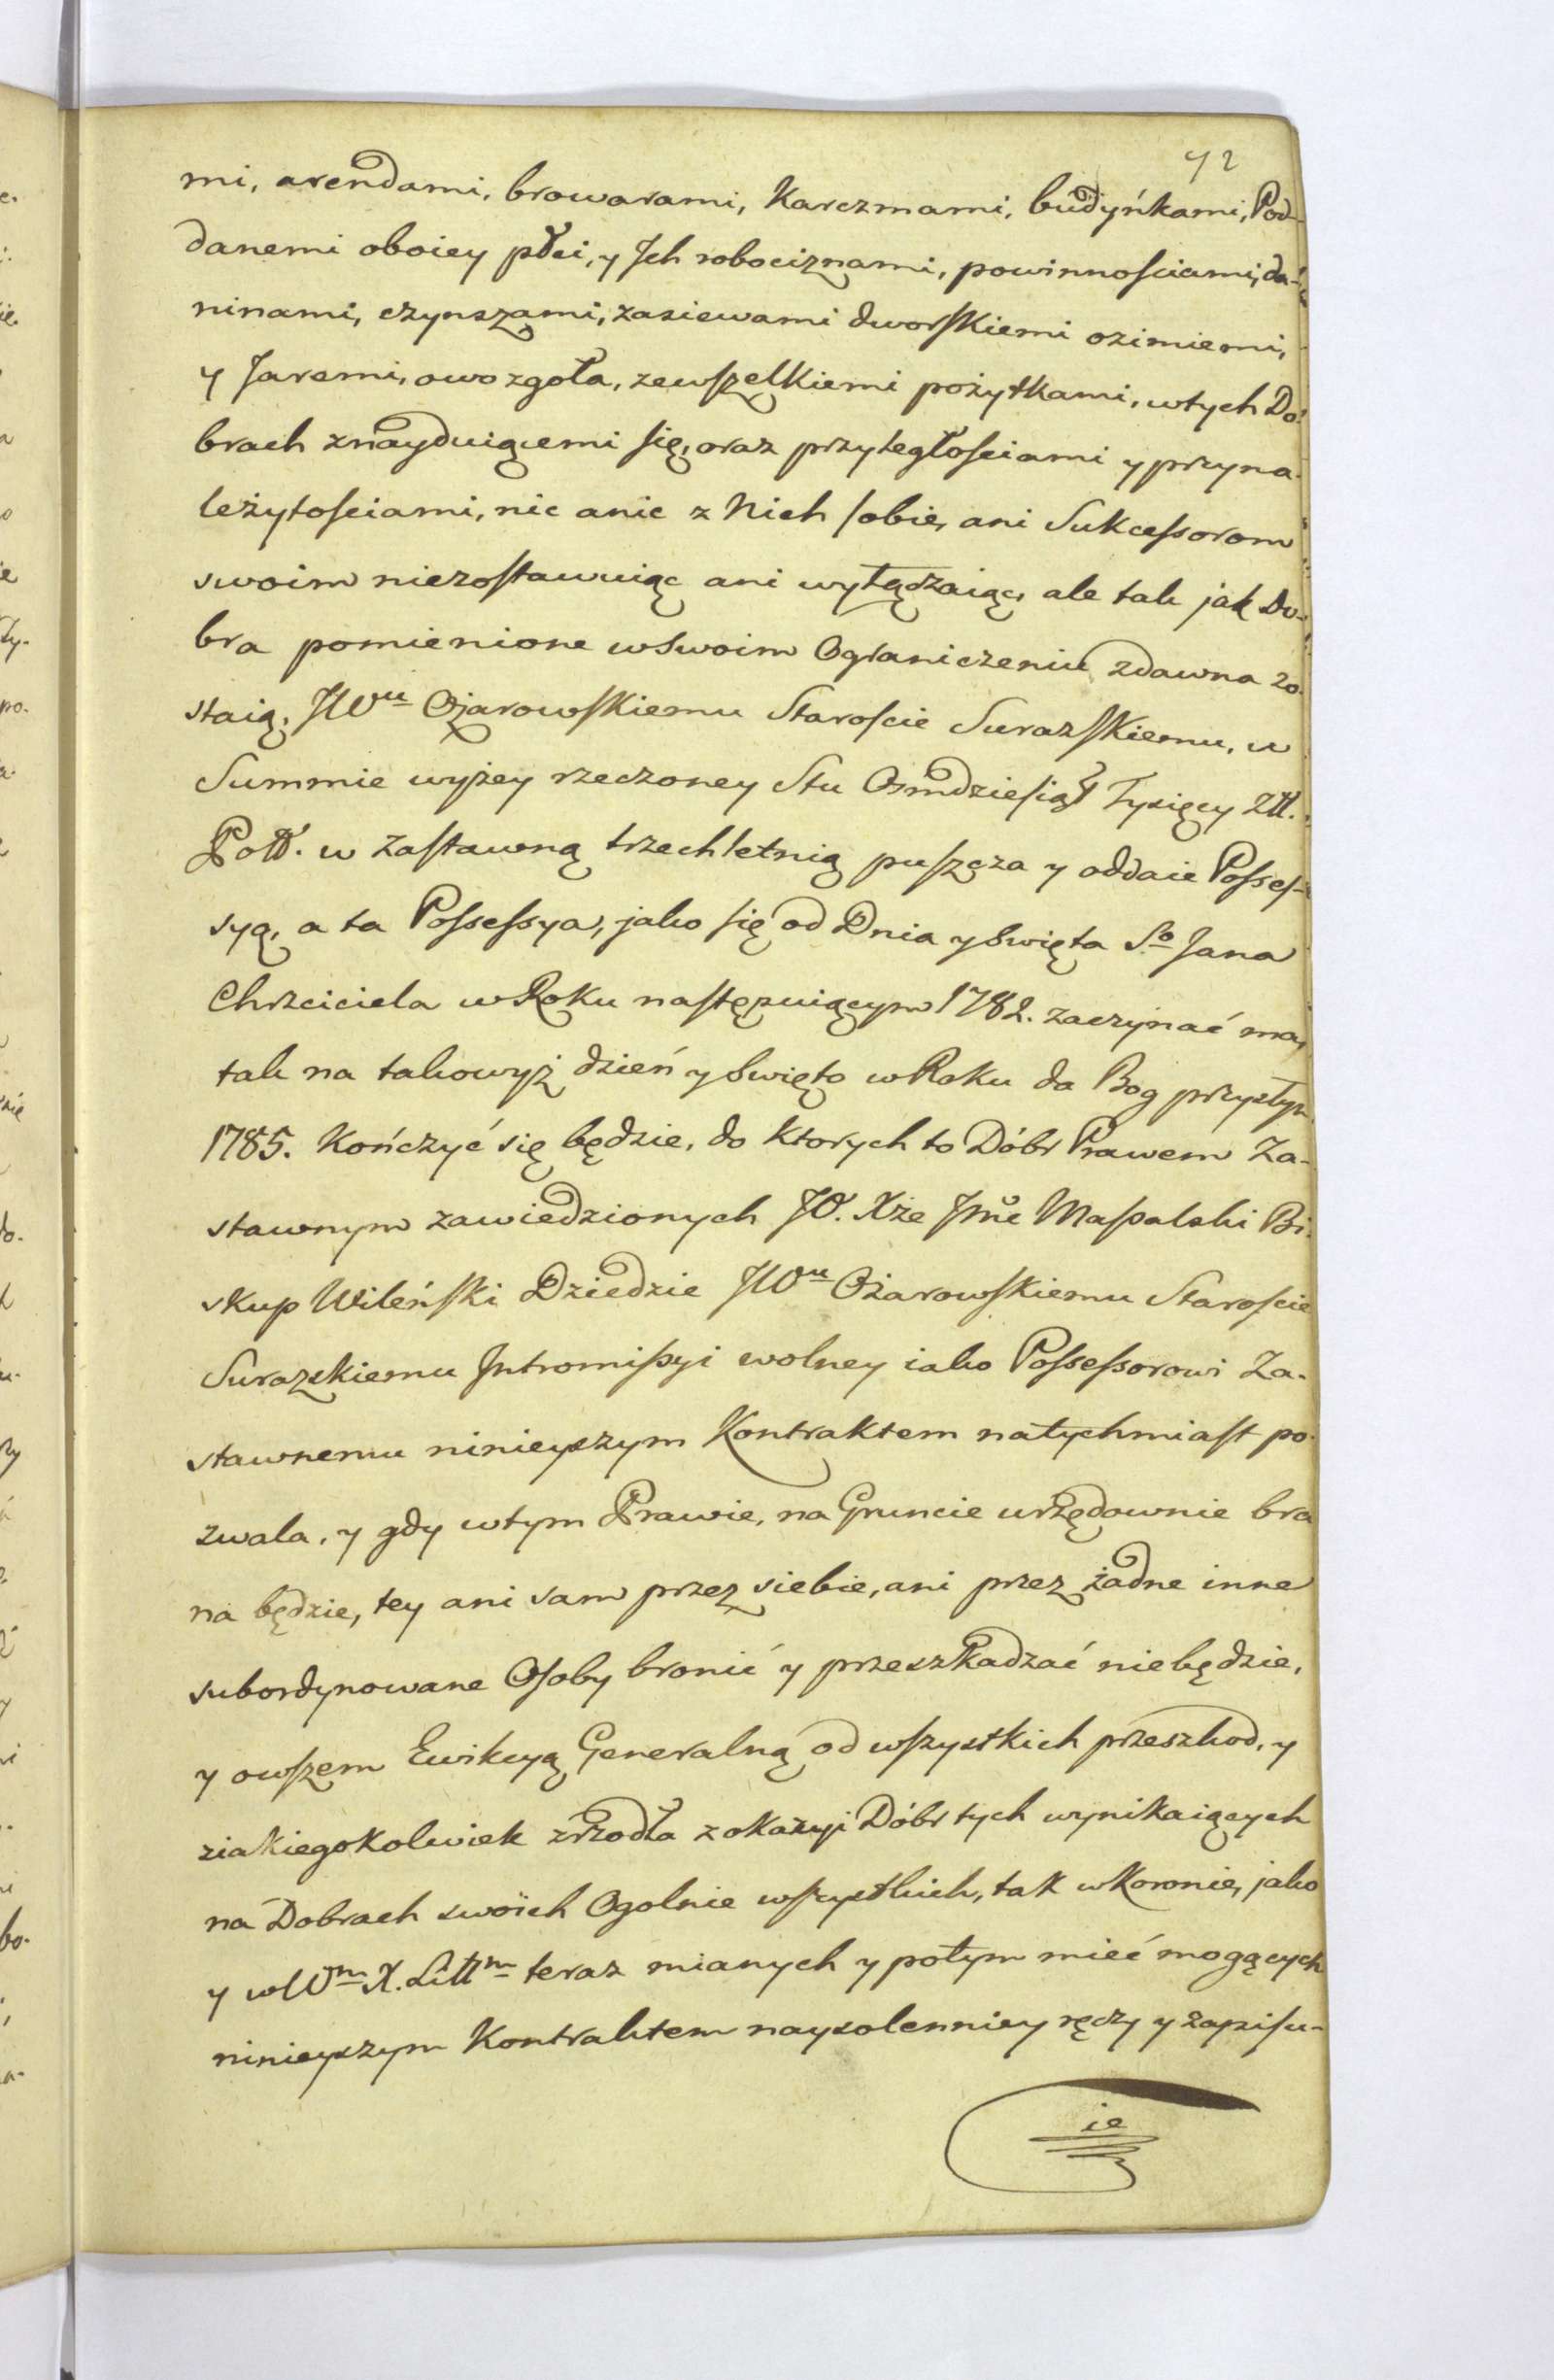 42
mi, arendami, browarami, Karczmami, budyńkami, Pod-
danemi oboiey płci, y Jch robociznami, powinnościami, da-
ninami, czynszami, zasiewami dworskiemi ozimiemi,
y Jaremi, owo zgoła, zewszelkiemi pożytkami, wtych Do-
brach znayduiącemi się, oraz przyległościami y przyna-
leżytościami, nic a nic z Nich sobie, ani Sukcessorom
swoim niezostawuiąc ani wyłączaiąc, ale tak jak Do-
bra pomienione wswoim Ograniczeniu zdawna zo-
staią, JWu Ożarowskiemu Staroscie Surazskiemu, w
Summie wyżey rzeczoney Stu Osmdziesiąt Tysięcy Złł.
Poll. w zastawną trzechletnią puszcza y oddaie Posses-
syą, a ta Possessya, jako się od Dnia y Swięta So Jana
Chrzciciela w Roku następuiącym 1782. zaczynać ma,
tak na takowyż dzień y Swięto w Roku da Bog przyszłym
1785. Kończyć się będzie, do ktorych to Dóbr Prawem Za-
stawnym zawiedzionych JO. Xże Jmć Massalski Bi-
skup Wileński Dziedzic JWu Ożarowskiemu Staroscie
Surazskiemu Intromissyi wolney iako Possessorowi Za-
stawnemu ninieyszym Kontraktem natychmiast po-
zwala, y gdy wtym Prawie, na Gruncie urzędownie bra
na będzie, tey ani sam przez siebie, ani przez żadne inne
subordynowane Osoby bronić y przeszkadzać niebędzie,
y owszem Ewikcyą Generalną od wszystkich przeszkod, y
ziakiegokolwiek zrzodła z okazyi Dóbr tych wynikaiących
na Dobrach swoich Ogolnie wszystkich, tak w Koronie, jako
y w Wm X. Littm teraz mianych y potym mieć mogących
ninieyszym Kontraktem naysolenniey ręczy y zapisu-
ie